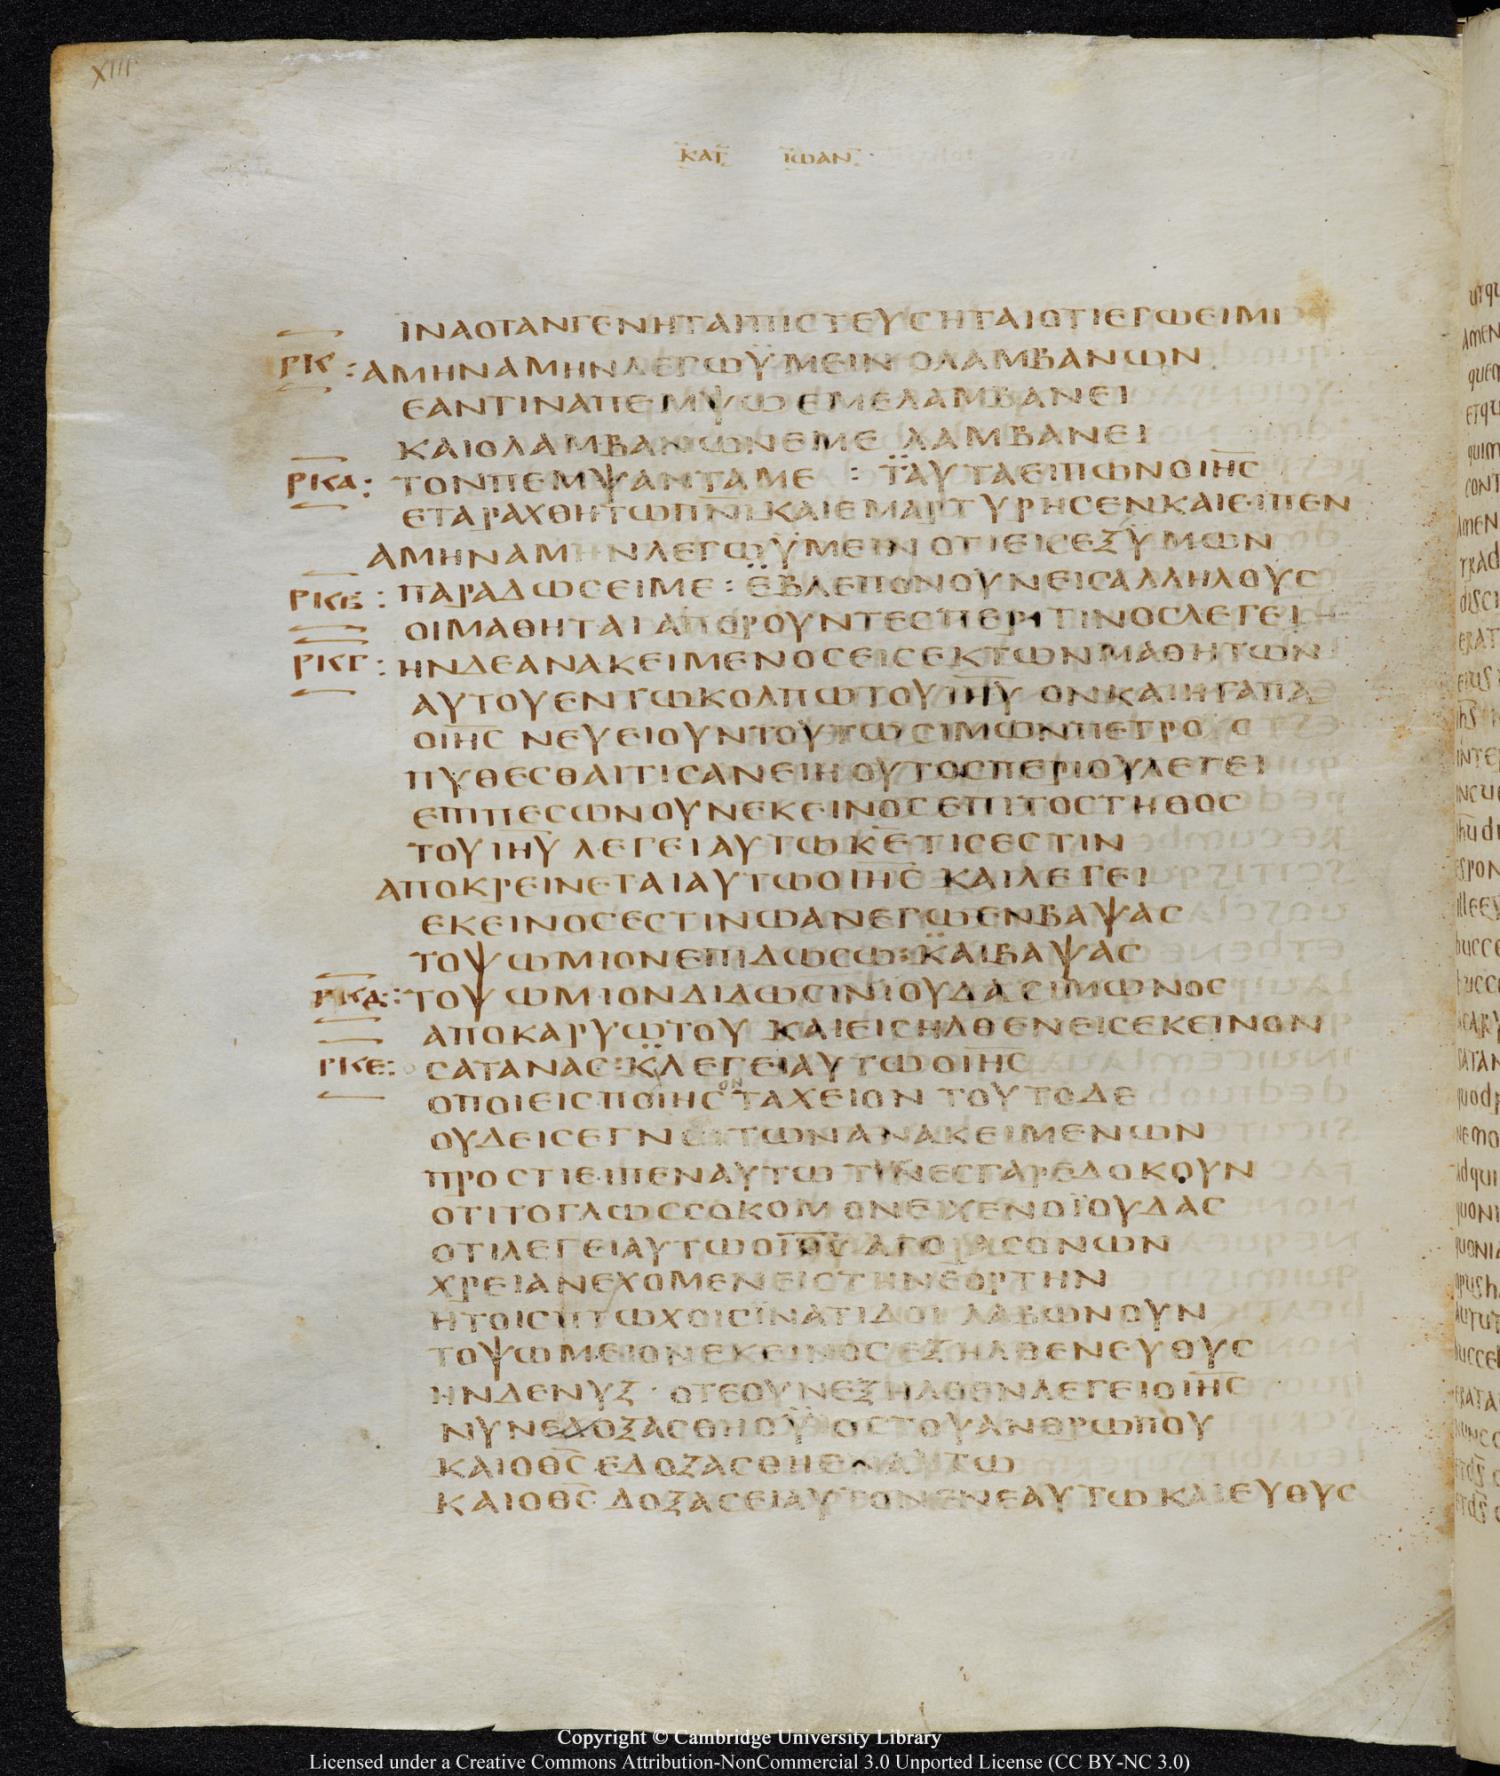 XIII
ΚΑΤ ΙΩΑΝ
ΙΝΑΟΤΑΝΓΕΝΗΤΑΙΠΙСΤΕΥСΗΤΑΙΟΤΙΕΓΩΕΙΜΙ
ΡΚ : ΑΜΗΝΑΜΗΝΛΕΓΩΫΜΕΙΝ ΟΛΑΜΒΑΝΩΝ
ΕΑΝΤΙΝΑΠΕΜΨΩ ΕΜΕΛΑΜΒΑΝΕΙ
ΚΑΙΟΛΑΜΒΑΝΩΝΕΜΕ ΛΑΜΒΑΝΕΙ
ΡΚΑ : ΤΟΝΠΕΜΨΑΝΤΑΜΕ : ΤΑΥΤΑΕΙΠΩΝΟΙΗС
ΕΤΑΡΑΧΘΗΤΩΠΝΙ ΚΑΙΕΜΑΡΤΥΡΗСΕΝΚΑΙΕΙΠΕΝ
ΑΜΗΝΑΜΗΝΛΕΓΩΫΜΕΙΝ ΟΤΙΕΙСΕΞΥΜΩΝ
ΡΚΒ : ΠΑΡΑΔΩСΕΙΜΕ : ΕΒΛΕΠΟΝΟΥΝΕΙСΑΛΛΗΛΟΥС
ΟΙΜΑΘΗΤΑΙ ΑΠΟΡΟΥΝΤΕС ΠΕΡΙ ΤΙΝΟСΛΕΓΕΙ
ΡΚΓ : ΗΝΔΕΑΝΑΚΕΙΜΕΝΟСΕΙСΕΚΤΩΝΜΑΘΗΤΩΝ
ΑΥΤΟΥΕΝΤΩΚΟΛΠΩΤΟΥΙΗΥ ΟΝΚΑΙΗΓΑΠΑ
ΟΙΗС ΝΕΥΕΙΟΥΝΤΟΥΤΩСΙΜΩΝΠΕΤΡΟС
ΠΥΘΕСΘΑΙΤΙСΑΝΕΙΗ ΟΥΤΟСΠΕΡΙΟΥΛΕΓΕΙ
ΕΠΙΠΕСΩΝΟΥΝΕΚΕΙΝΟСΕΠΙΤΟСΤΗΘΟС
ΤΟΥΙΗΥ ΛΕΓΕΙΑΥΤΩ ΚΕ ΤΙСΕСΤΙΝ
ΑΠΟΚΡΕΙΝΕΤΑΙΑΥΤΩΟΙΗС ΚΑΙΛΕΓΕΙ
ΕΚΕΙΝΟСΕСΤΙΝΩΑΝΕΓΩΕΝΒΑΨΑС
ΤΟΨΩΜΙΟΝΕΠΙΔΩСΩ : ΚΑΙΒΑΨΑС
ΡΚΔ : ΤΟΨΩΜΙΟΝΔΙΔΩСΙΝΙΟΥΔΑСΙΜΩΝΟС
ΑΠΟΚΑΡΥΩΤΟΥ ΚΑΙΕΙСΗΛΘΕΝΕΙСΕΚΕΙΝΟΝ
ΡΚΕ : СΑΤΑΝΑС : ΚΛΕΓΕΙΑΥΤΩΟΙΗС
ΟΠΟΙΕΙСΠΟΙΗСΟΝΤΑΧΕΙΟΝ ΤΟΥΤΟΔΕ
ΟΥΔΕΙСΕΓΝΩΤΩΝΑΝΑΚΕΙΜΕΝΩΝ
ΠΡΟСΤΙΕΙΠΕΝΑΥΤΩ ΤΙΝΕСΓΑΡΕΔΟΚΟΥΝ
ΟΤΙΤΟΓΛΩССΟΚΟΜΟΝΕΙΧΕΝΟΪΟΥΔΑС
ΟΤΙΛΕΓΕΙΑΥΤΩΟ ΑΓΟΡΑСΟΝΩΝ
ΧΡΕΙΑΝΕΧΟΜΕΝΕΙСΤΗΝΕΟΡΤΗΝ
ΗΤΟΙСΠΤΩΧΟΙСΪΝΑΤΙΔΟΙ ΛΑΒΩΝΟΥΝ
ΤΟΨΩΜΕΙΟΝΕΚΕΙΝΟСΕΞΗΛΘΕΝΕΥΘΥС
ΗΝΔΕΝΥΞ · ΟΤΕΟΥΝΕΞΗΛΘΕΝΛΕΓΕΙΟΙΗС
ΝΥΝΕΔΟΞΑСΘΗΟΫΟСΤΟΥΑΝΘΡΩΠΟΥ
ΚΑΙΟΘС ΕΔΟΞΑСΘΗΕΝΑΥΤΩ
ΚΑΙΟΘС ΔΟΞΑСΕΙΑΥΤΟΝΕΝΕΑΥΤΩ ΚΑΙΕΥΘΥС
Copyright © Cambridge University Library
Licensed under a Creative Commons Attribution-NonCommercial 3.0 Unported License (CC BY-NC 3.0)